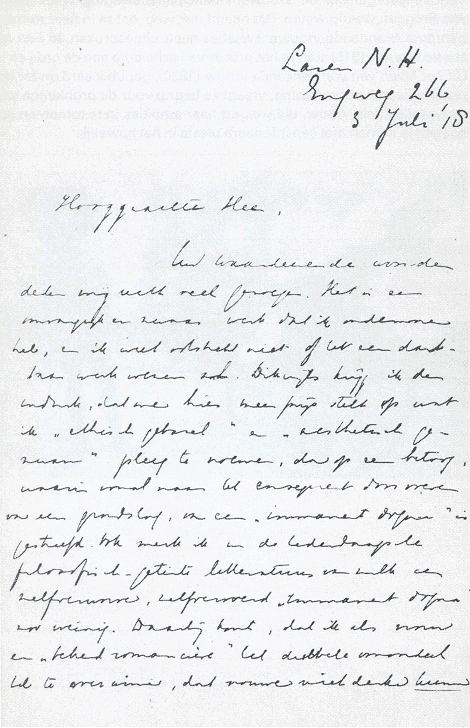 Laren N.H.
Engweg 266
3 Juli '18
Hooggeachte Heer,
Uw waardeerende woorden
deden mij veel genoegen. Het is een
omvangrijk en zwaar werk dat ik ondernomen
heb, en ik weet volstrekt niet of het een dank-
baar werk wezen zal. Dikwijls krijg ik den
indruk, dat men hier meer prijs stelt op wat
ik "ethisch gebazel" en "aesthetisch ge-
" pleeg te noemen, dan op een betoog,
waarin vooral naar het consequent doorvoeren
van een grondslag, van een "immanent dogma" is
gestreefd. Ook merk ik in de hedendaagsche
filosofisch-getinte litteratuur van zulk een
"immanent dogma"
zoo weinig. Daarbij komt, dat ik als vrouw
en "bekend romancière" het dubbele vooroordeel
heb te overwinnen, dat vrouwen niet denken kunnen